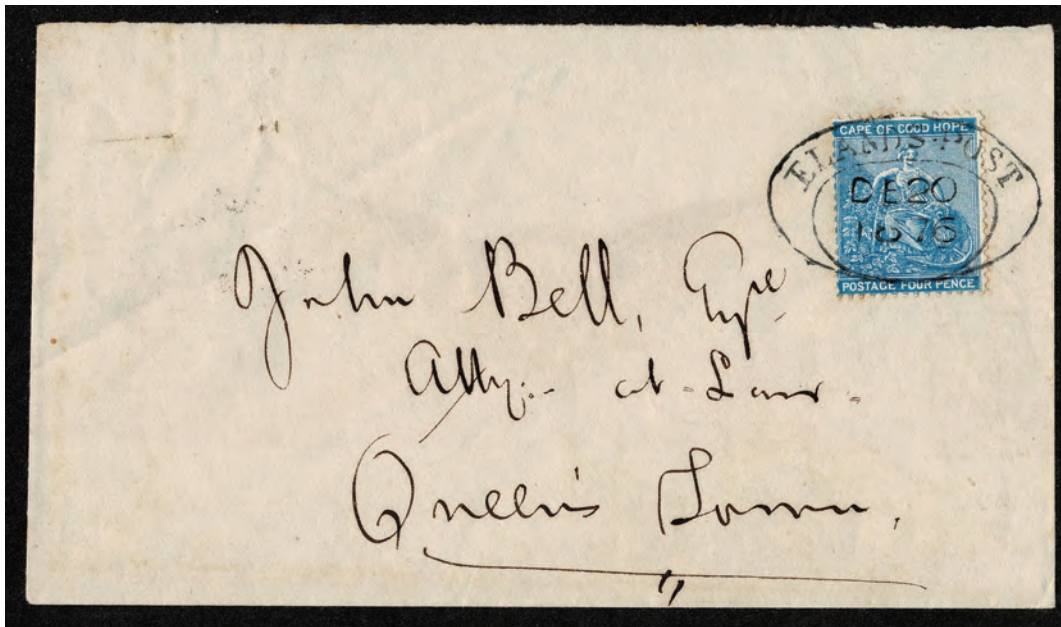 CAPE OF GOOD HOPE
ELANDS-POST
DE20
1876
POSTAGE FOUR PENCE
John Bell, Esqre
Atty:- at-Law-
Queen's Town,